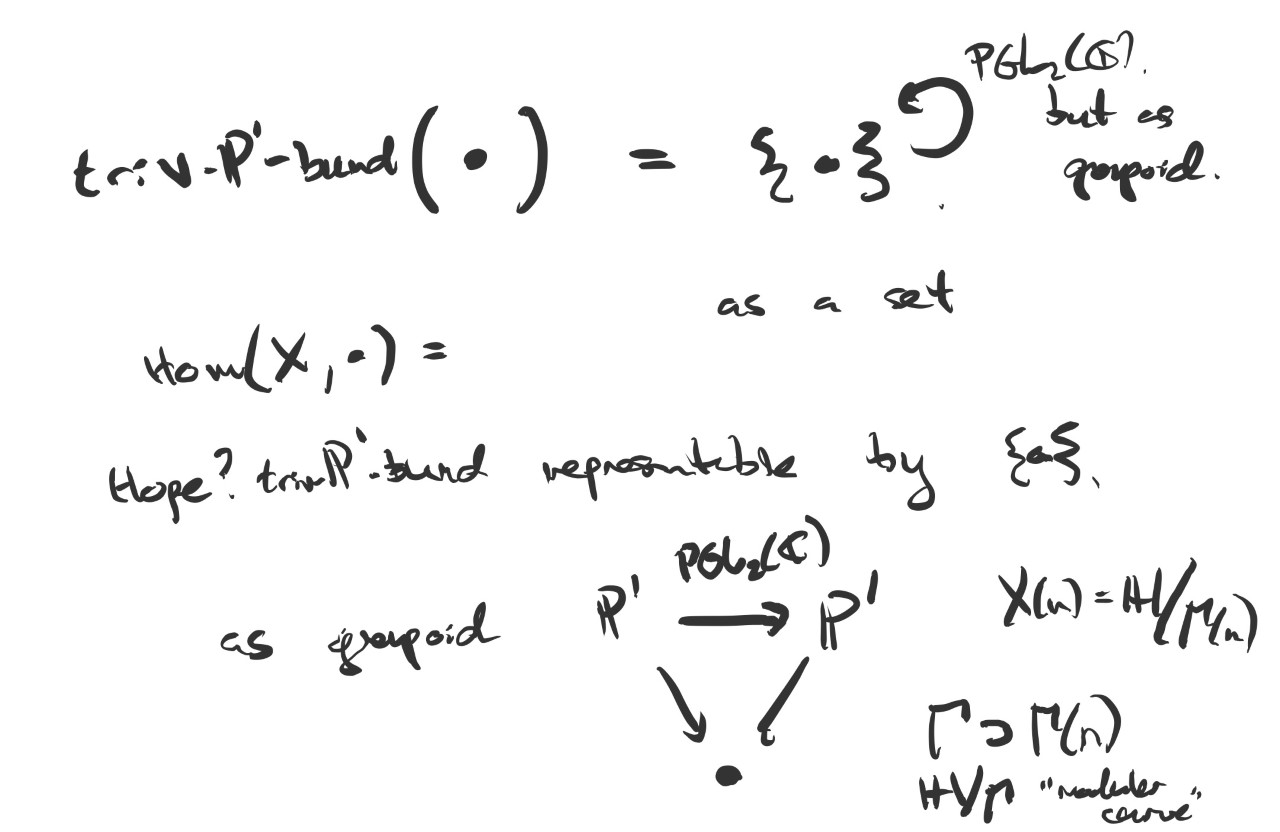 PGL₂(ℂ).
triv-ℙ¹-bund(•) = {•} but as
groupoid.
as a set
Hom(X, •) =
Hope? triv-ℙ¹-bund representable by {•}.
PGL₂(ℂ)
as groupoid ℙ¹ → ℙ¹ X(n) = ℍ/Γ(n)
Γ ⊃ Γ(n)
ℍ/Γ "modular
curve"